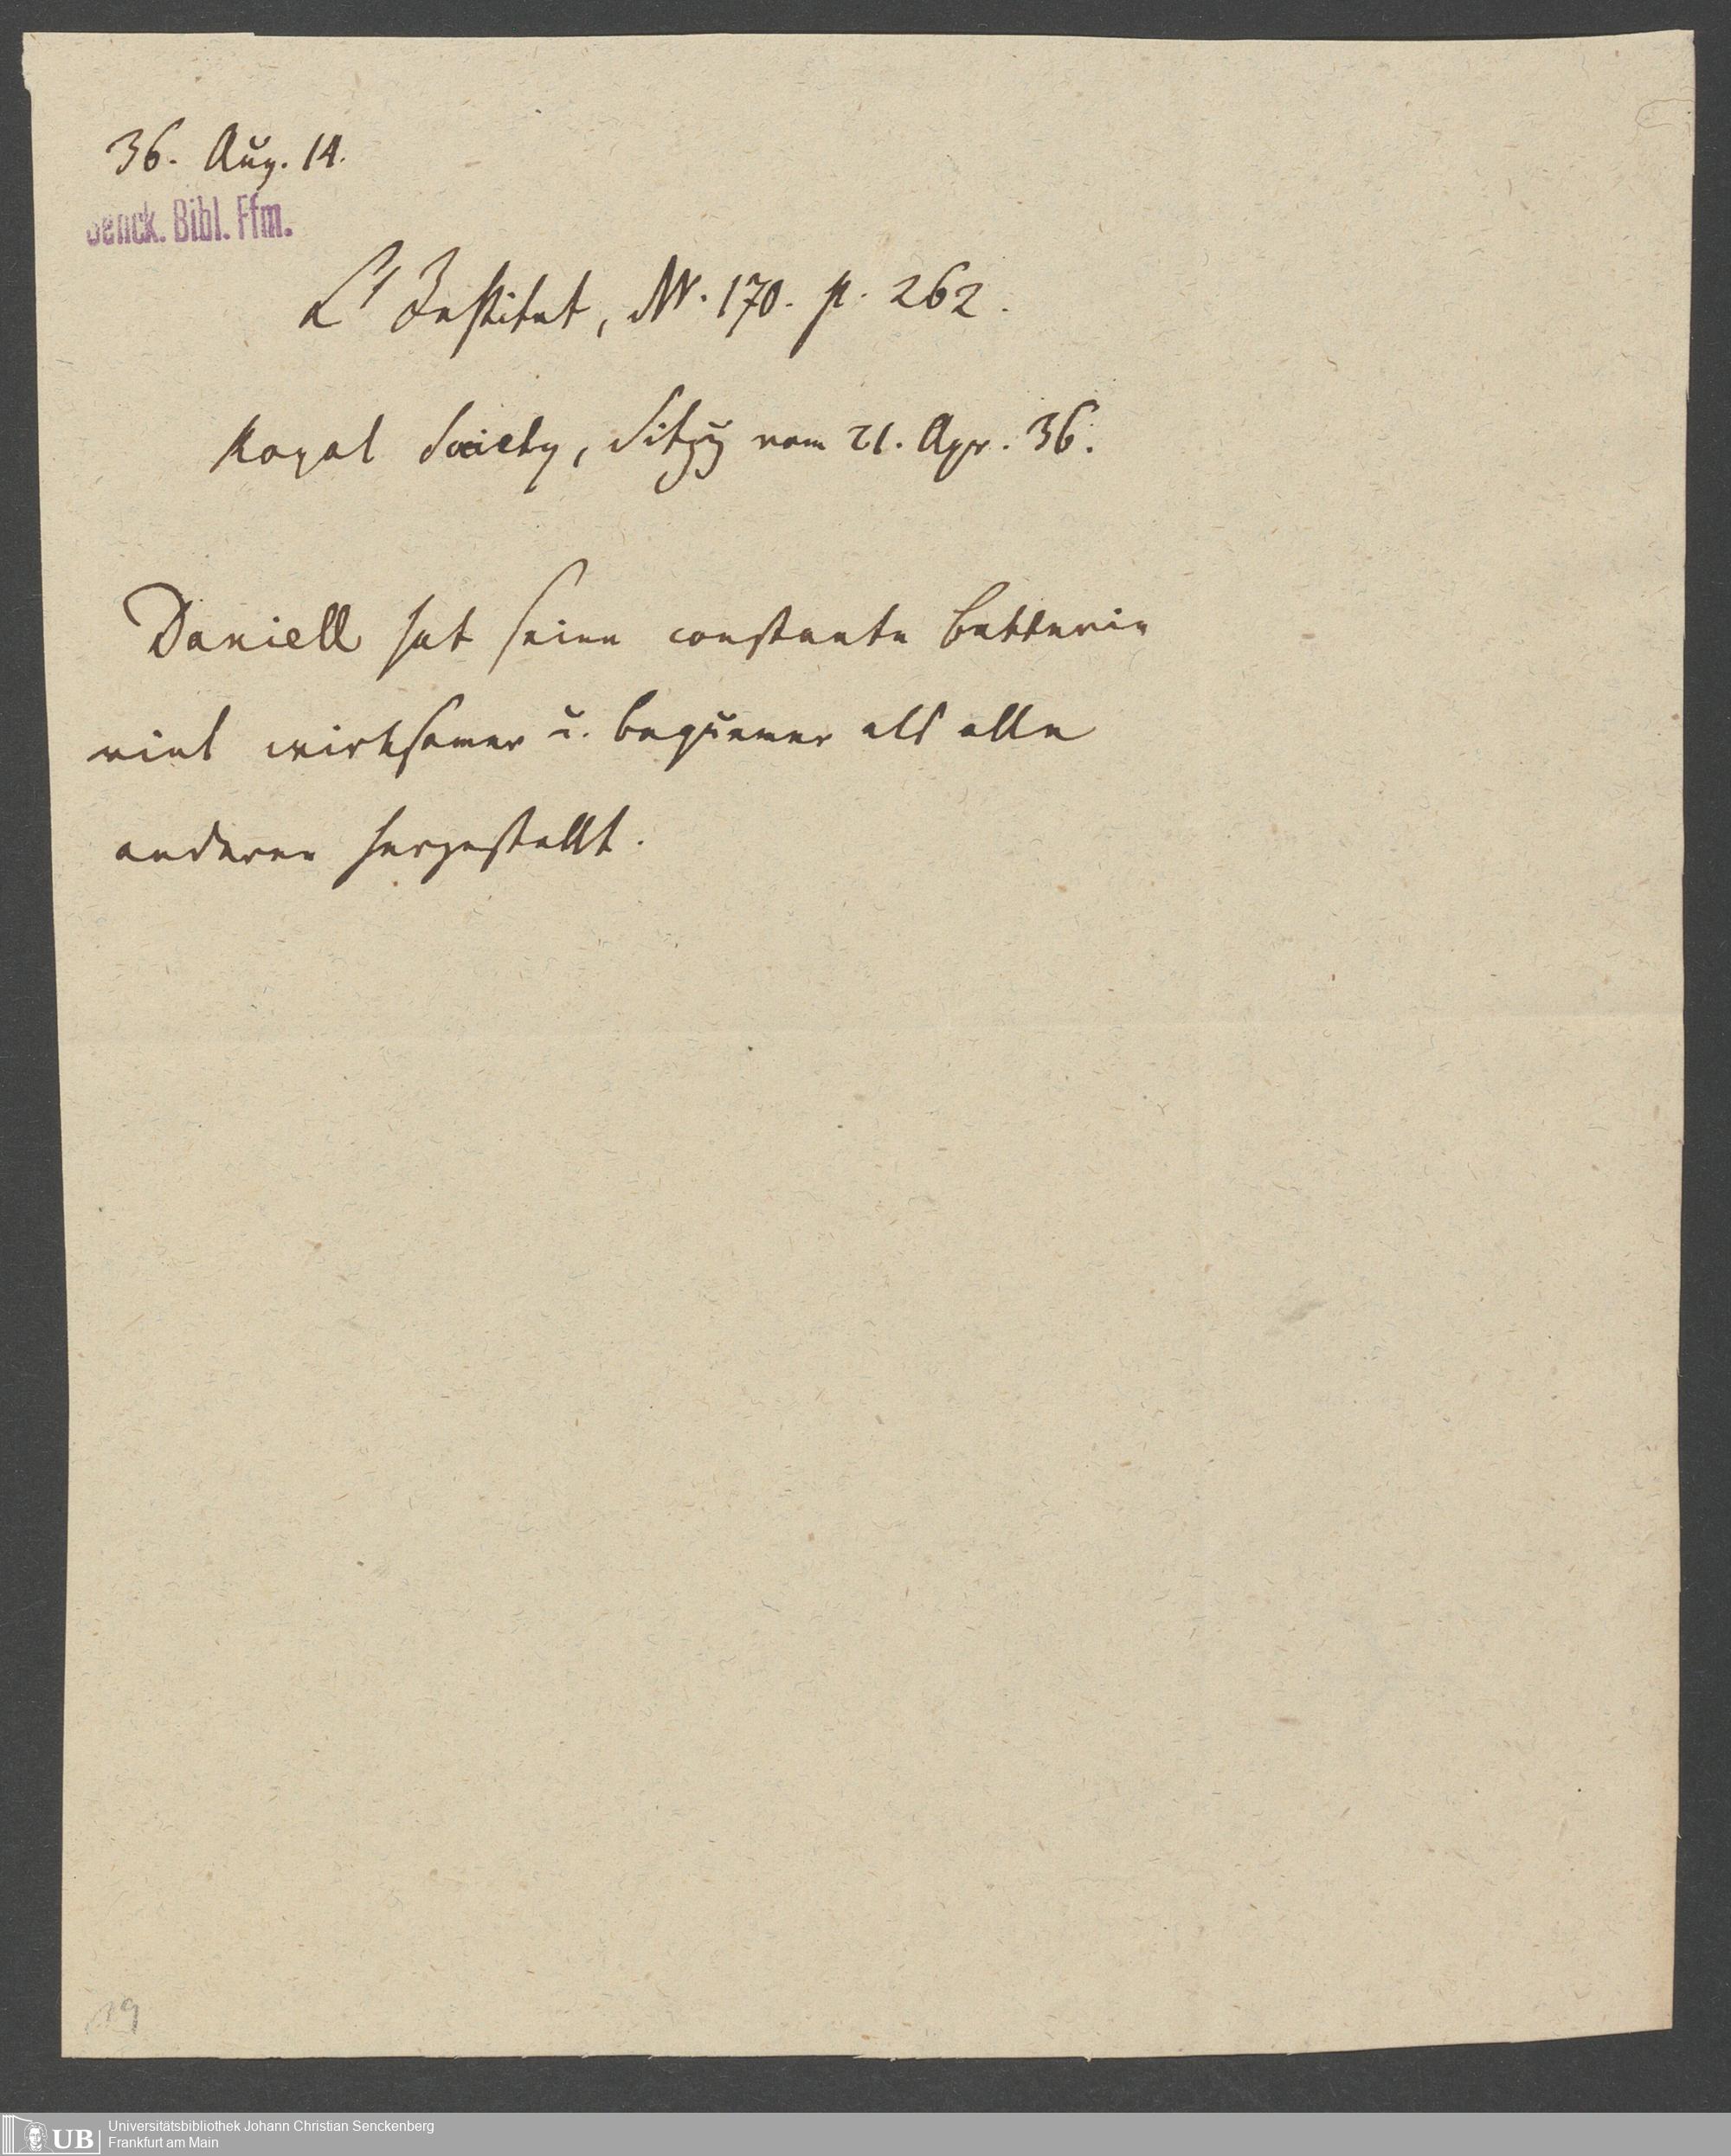 36. Aug. 14.
Senck. Bibl. Ffm.
L' Institut, Nr. 170. p. 262.
Royal Society, Sitzg vom 21. Apr. 36.
Daniell hat seine constante Batterie
viel wirksamer u. bequemer als alle
anderen hergestellt.
19
UB
Universitätsbibliothek Johann Christian Senckenberg
Frankfurt am Main